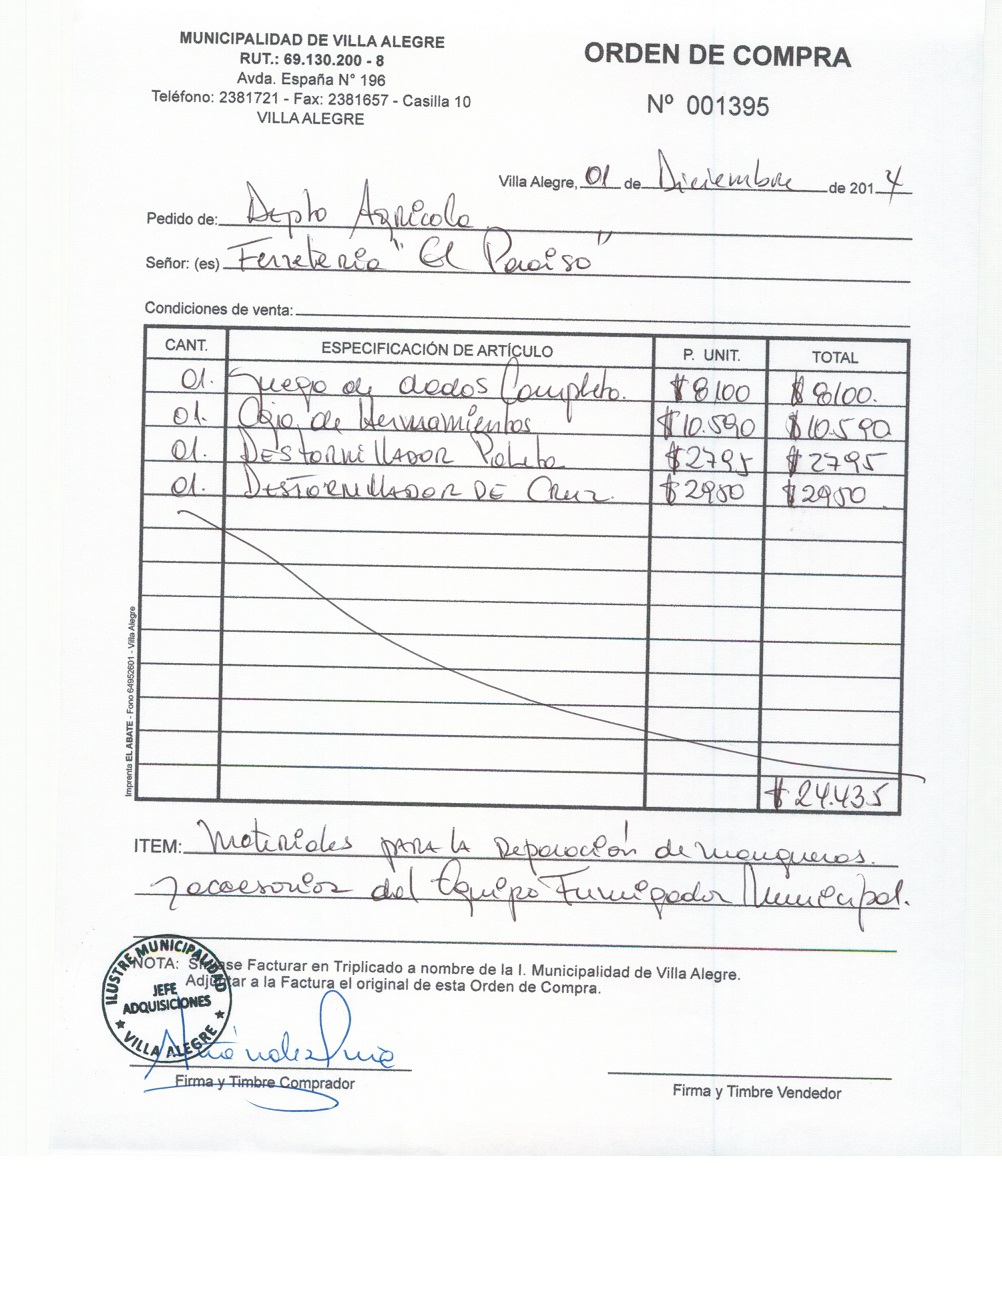 MUNICIPALIDAD DE VILLA ALEGRE
RUT.: 69.130.200 - 8
Avda. España N° 196
Teléfono: 2381721 - Fax: 2381657 - Casilla 10
VILLA ALEGRE
ORDEN DE COMPRA
Nº 001395
Villa Alegre, 01 de Diciembre de 2014
Pedido de: Depto Agricola
Señor: (es) Ferreteria "El Paraiso"
Condiciones de venta:
CANT. ESPECIFICACIÓN DE ARTÍCULO P. UNIT. TOTAL
01. Juego de dados Completo. $ 8100 $ 8100.
01. Caja de Herramientas $ 10.590 $ 10.590
01. DESTORNILLADOR Paleta $ 2795 $ 2795
01. DESTORNILLADOR DE Cruz. $ 2950 $ 2950
$ 24.435
ITEM: Materiales PARA LA Reparación de mangueras.
y accesorios del Equipo Fumigador Municipal.
NOTA: Sírvase Facturar en Triplicado a nombre de la I. Municipalidad de Villa Alegre.
Adjuntar a la Factura el original de esta Orden de Compra.
ILUSTRE MUNICIPALIDAD
JEFE
ADQUISICIONES
VILLA ALEGRE
Firma y Timbre Comprador
Firma y Timbre Vendedor
Imprenta EL ABATE - Fono 64952601 - Villa Alegre